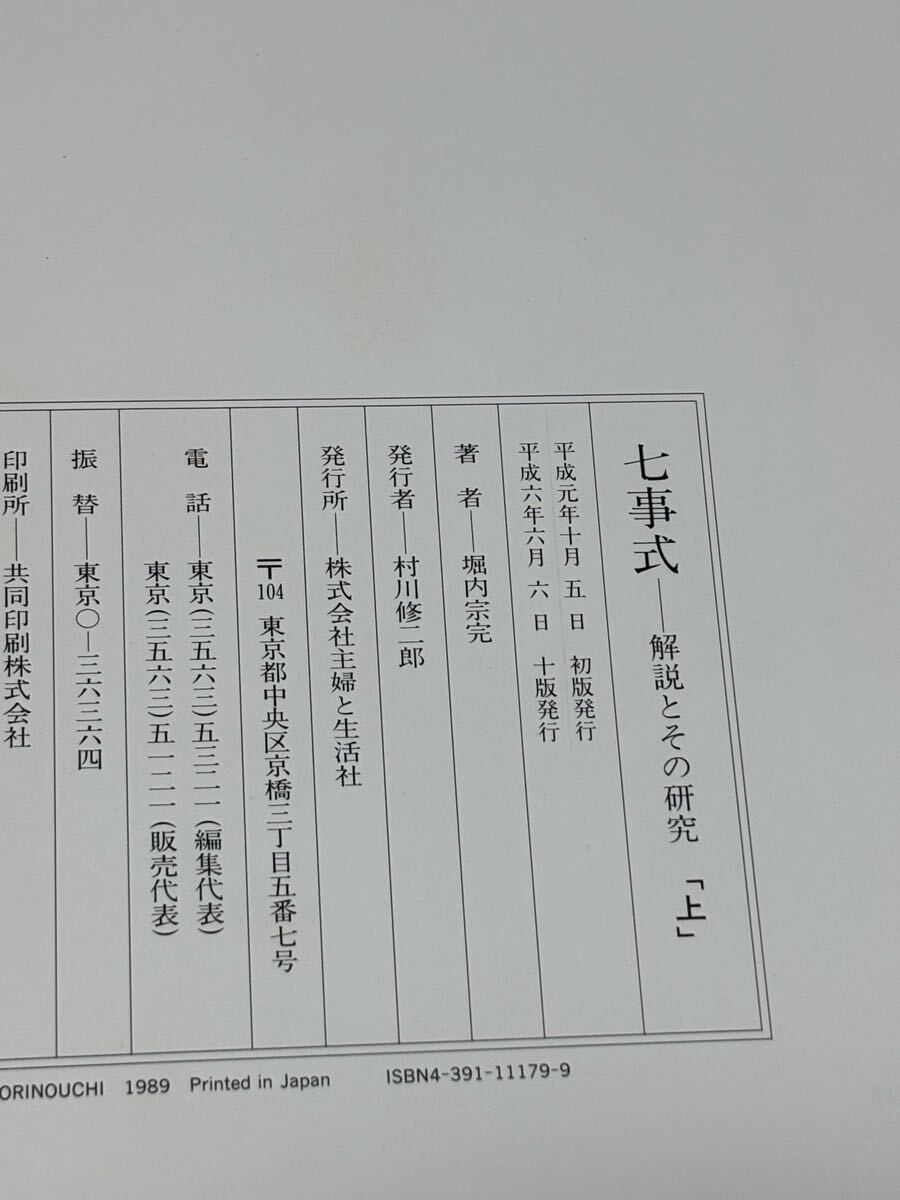 七事式――解説とその研究 「上」
平成元年十月 五 日 初版発行
平成六年六月 六 日 十版発行
著 者――堀内宗完
発行者――村川修二郎
発行所――株式会社主婦と生活社
〒104 東京都中央区京橋三丁目五番七号
電 話――東京(三五六三)五三二一(編集代表)
東京(三五六三)五一二一(販売代表)
振 替――東京〇―三六三六四
印刷所――共同印刷株式会社
ORINOUCHI 1989 Printed in Japan ISBN4-391-11179-9